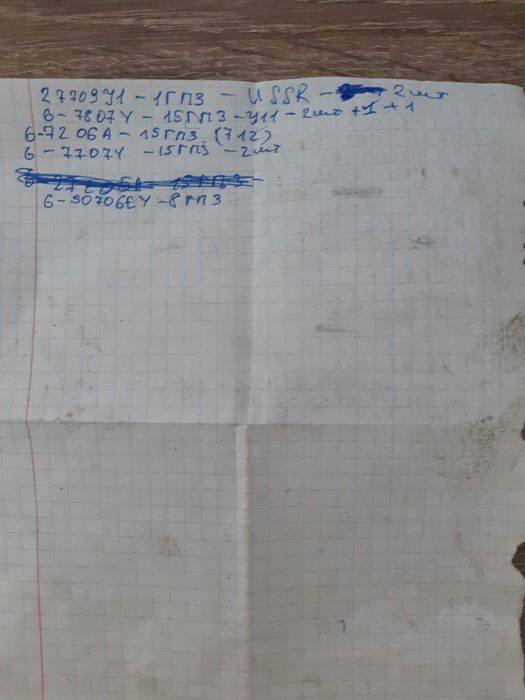 27709У1 - 1ГПЗ - USSR - 2шт
6-7807У - 15ГПЗ - У11 - 2шт +1 +1
6-7206А - 15ГПЗ (712)
6-7707У - 15ГПЗ - 2шт
6-50706ЕУ - 8ГПЗ